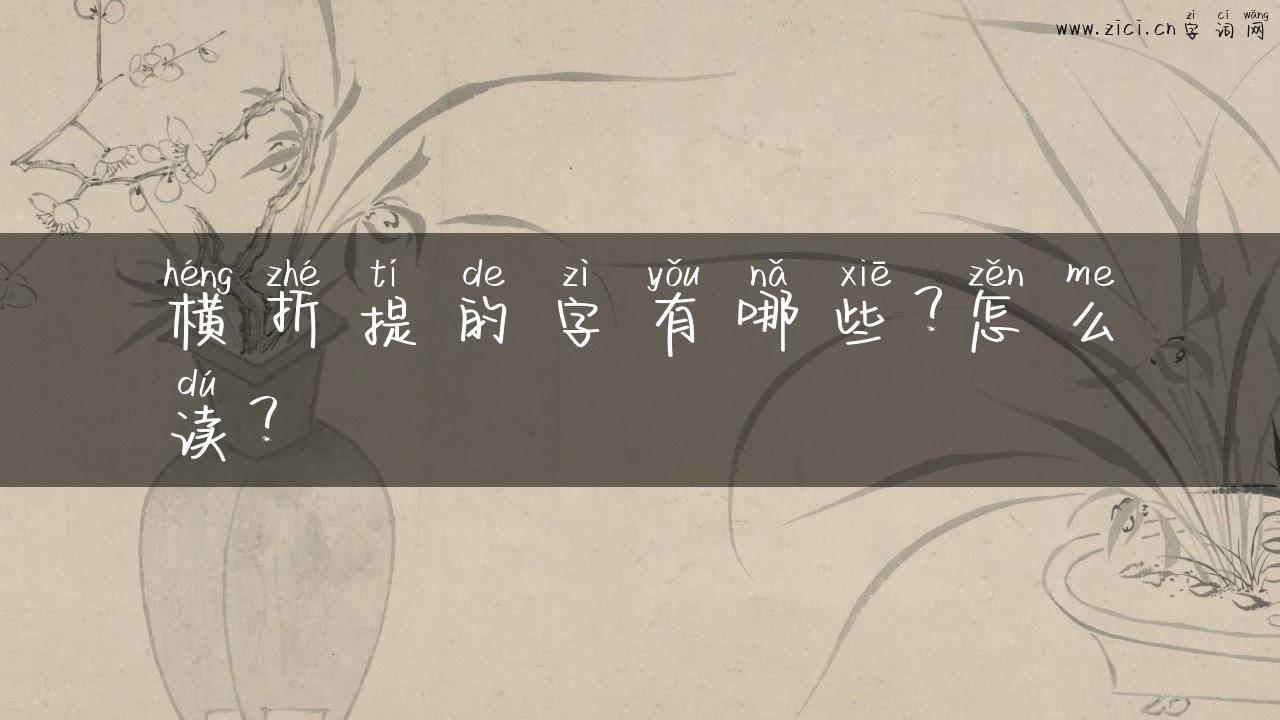 zì cí wǎng
www.zici.cn 字词网
héng zhé tí de zì yǒu nǎ xiē zěn me
横折提的字有哪些？怎么
dú
读？